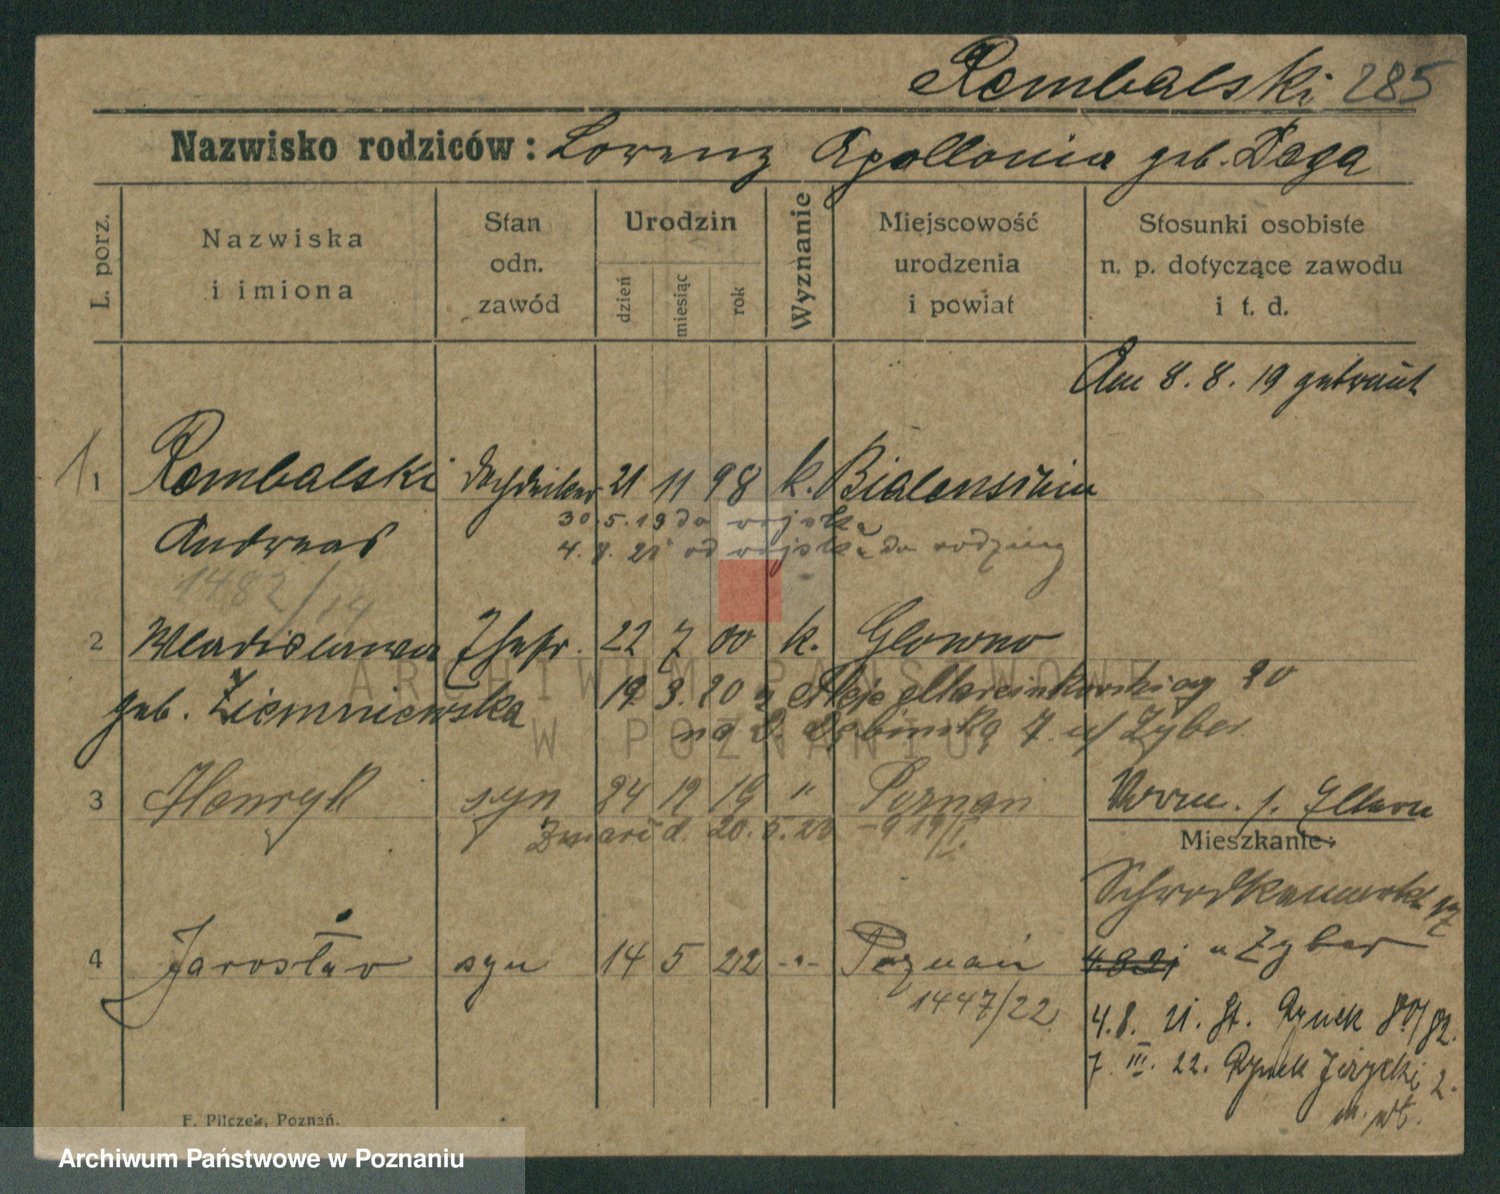 Rembalski 285
Nazwisko rodziców: Lorenz Apollonia geb. Daga
L. porz.
Nazwiska i imiona
Stan odn. zawód
Urodzin
dzień miesiąc rok
Wyznanie
Miejscowość urodzenia i powiat
Stosunki osobiste n. p. dotyczące zawodu i t. d.
Am 8. 8. 19 getraut
1 1 Rembalski Dachdecker 21 11 98 k. Bialenschin
30.5.19 do wojska
Andreas 4. 8. 21 od wojska do rodziny
1482/14
2 Wladislawa Ehefr. 22 7 00 k. Glowno
geb. Ziemniewska 19 3. 20 z Aleje Marcinkowskiego 20
na D. Dębinską 7. u/ Zyber
3 Henryk syn 24 12 19 " Poznan
Zmarł d. 20. 5. 20
Worm. s. Eltern
Mieszkanie:
Schrodkamarkt 17
4 Jarosław syn 14 5 22 -"- Poznań
4.8.21 u Zyber
1447/22
4. 8. 21. St. Rynek 80/82.
7. III. 22. Rynek Jeżycki 2.
F. Pilczek, Poznań.
ARCHIWUM PAŃSTWOWE
W POZNANIU
Archiwum Państwowe w Poznaniu